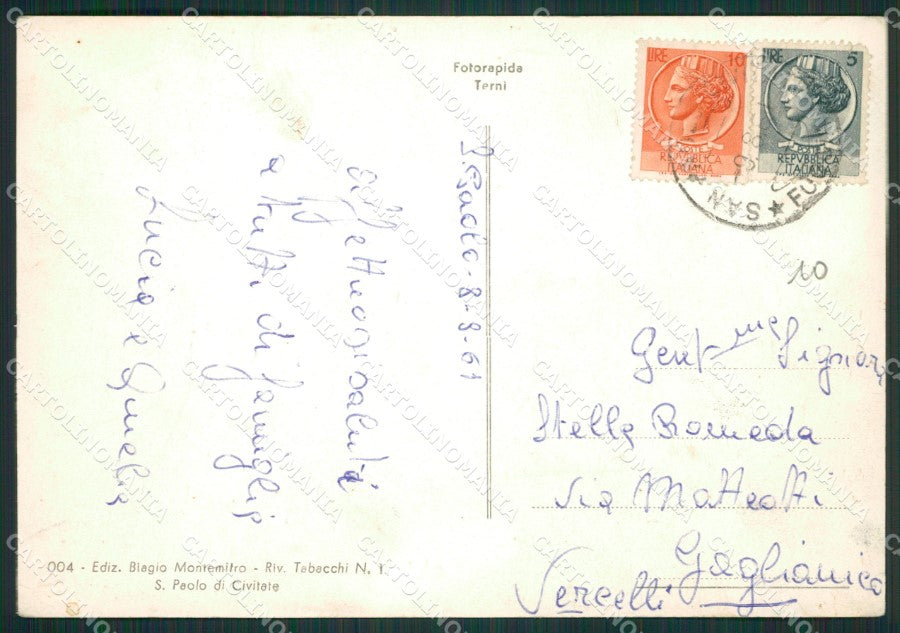 Fotorapida
Terni
LIRE 10
POSTE
REPVBBLICA
ITALIANA
LIRE 5
POSTE
REPVBBLICA
ITALIANA
SAN ★ FO
10
S. Paolo-8-8-61
Affettuosi saluti
a tutti di famiglia
Lucia e Amelia
Gent.me Signore
Stella Romeda
Via Matteotti
Gaglianico
Vercelli
004 - Ediz. Biagio Montemitro - Riv. Tabacchi N. 1
S. Paolo di Civitate
CARTOLINOMANIA